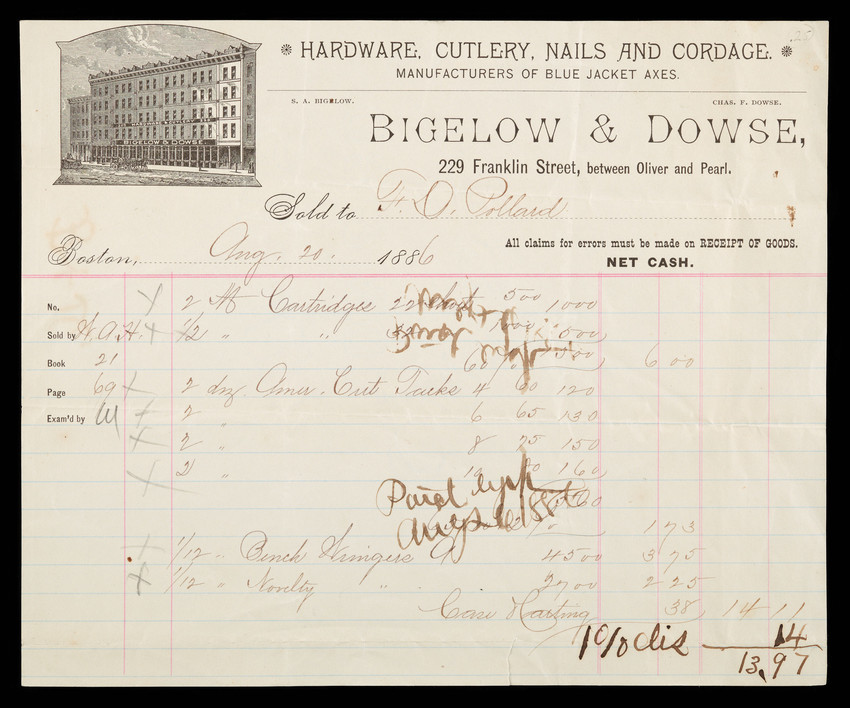 HARDWARE, CUTLERY, NAILS AND CORDAGE.
MANUFACTURERS OF BLUE JACKET AXES.
S. A. BIGELOW. CHAS. F. DOWSE.
BIGELOW & DOWSE,
229 Franklin Street, between Oliver and Pearl.
BIGELOW & DOWSE.
Sold to F. O. Pollard
Boston, Aug. 20. 1886
All claims for errors must be made on RECEIPT OF GOODS.
NET CASH.
No. 2 M Cartridges 22 500 1000
Sold by W. A. H. 1/2 " " 1000 500
Book 21 60 6 00
Page 69 2 dz. Amer. Cut Tacks 4 60 120
Exam'd by 2 " 6 65 130
2 " 8 75 150
2 " 160
Paid
1 73
1/12 " Bench Wringers 4500 3 75
1/12 " Novelty " 2700 2 25
Case & Carting 38 14 11
1% dis 14
13.97